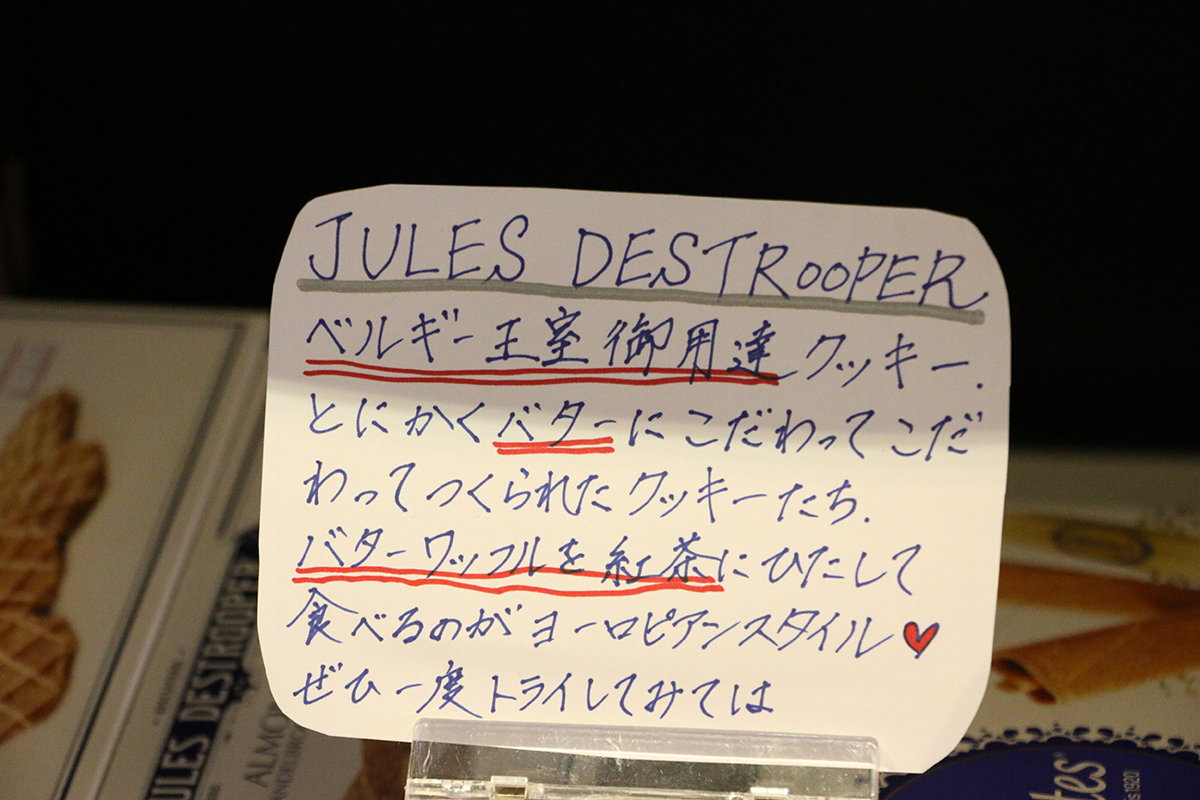 JULES DESTROOPER
ベルギー王室御用達クッキー.
とにかくバターにこだわってこだ
わってつくられたクッキーたち.
バターワッフルを紅茶にひたして
食べるのがヨーロピアンスタイル♥
ぜひ一度トライしてみては
JULES DESTROOPER
ALMO
tes
1920